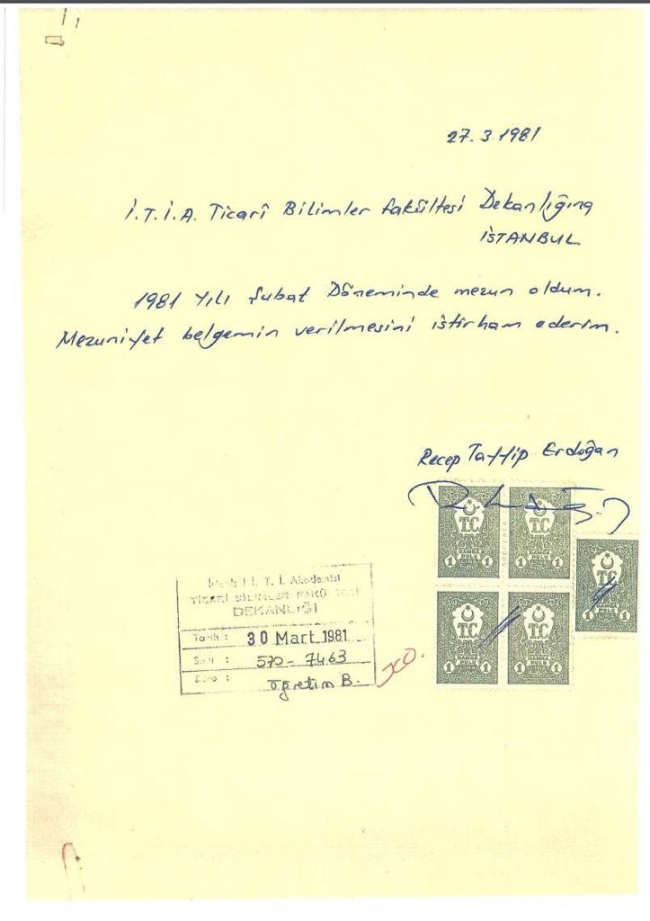 27.3.1981
İ.T.İ.A. Ticarî Bilimler fakültesi Dekanlığına
İSTANBUL
1981 Yılı Şubat Döneminde mezun oldum.
Mezuniyet belgemin verilmesini istirham ederim.
Recep Tayyip Erdoğan
T.C T.C
1 1 1 1
T.C
1
T.C T.C
1 1 1 1
İ. T. İ. Akademisi
TİCARİ BİLİMLER FAKÜLTESİ
DEKANLIĞI
Tarih : 30 Mart 1981
Sayı : 570-7463
Büro : öğretim B.